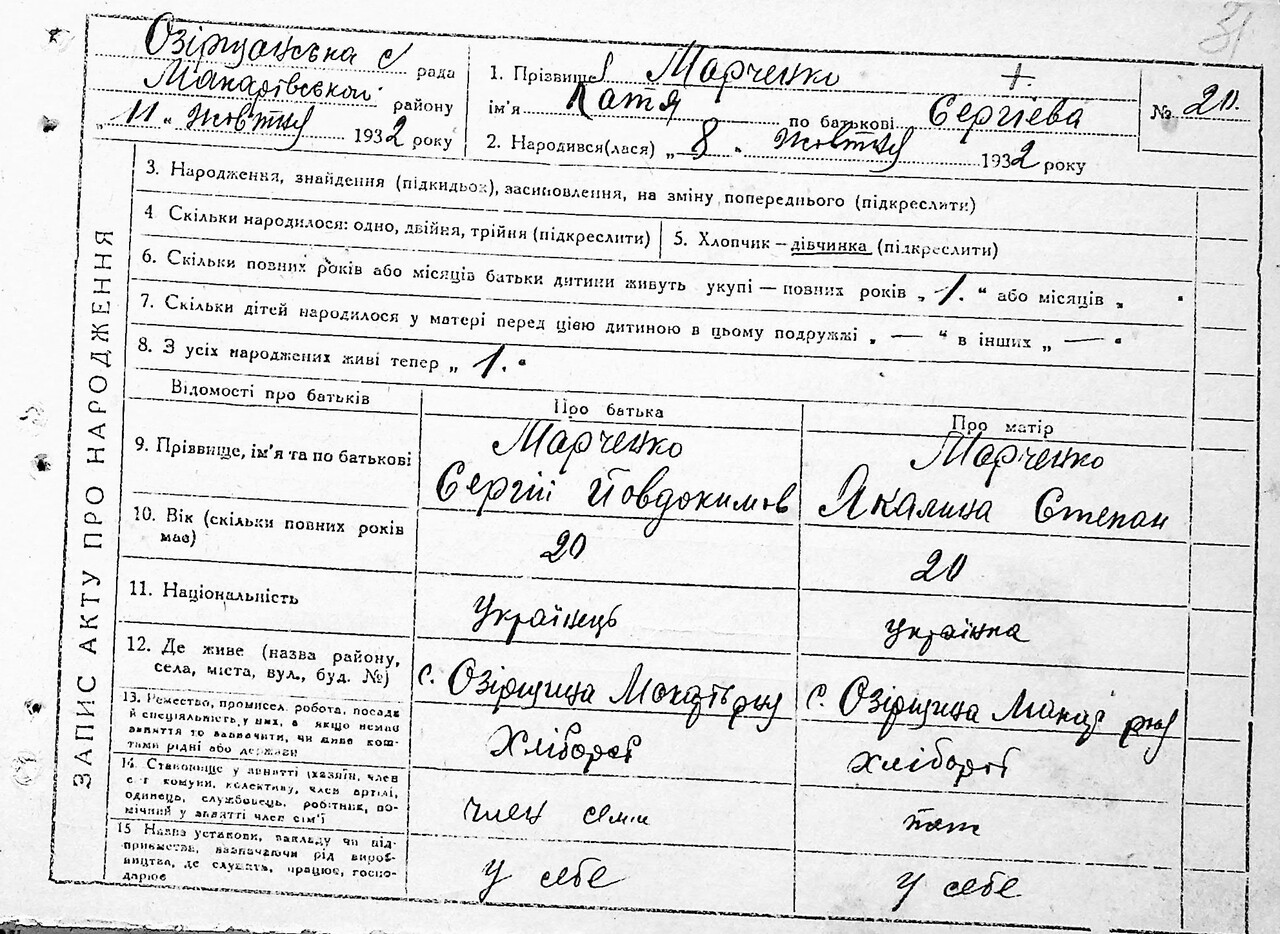 31
Озірщанська с рада
Макарівской району
„11„ жовтня 1932 року
1. Прізвище Марченко +
ім'я Катя по батькові Сергієва
2. Народився(лася) „ 8 „ жовтня 1932 року
№ 20.
ЗАПИС АКТУ ПРО НАРОДЖЕННЯ
3. Народження, знайдення (підкидьок), засиновлення, на зміну попереднього (підкреслити)
4. Скільки народилося: одно, двійня, трійня (підкреслити)
5. Хлопчик – дівчинка (підкреслити)
6. Скільки повних років або місяців батьки дитини живуть укупі — повних років „ 1. “ або місяців „ “
7. Скільки дітей народилося у матері перед цією дитиною в цьому подружжі „ — “ в інших „ — “
8. З усіх народжених живі тепер „ 1. “
Відомості про батьків
Про батька
Про матір
9. Прізвище, ім'я та по батькові
Марченко
Сергій Йовдокимов
Марченко
Якалина Степан
10. Вік (скільки повних років
має)
20
20
11. Національність
Українець
українка
12. Де живе (назва району,
села, міста, вул., буд. №)
с. Озірщина Макарів рну
с. Озірщина Макар рну
13. Ремество, промисел, робота, посада
й спеціяльність у них, а якщо немає
заняття то зазначити, чи живе кош-
тами рідні або держави
Хлібороб
хлібороб
14. Становище у занятті (хазяїн, член
с-г комуни, колективу, член артілі,
одинець, службовець, робітник, по-
мічний у занятті член сім'ї
член семи
тот
15 Назва установи, закладу чи під-
приємства, зазначаючи рід вироб-
ництва, де служить, працює, госпо-
дарює
у себе
у себе